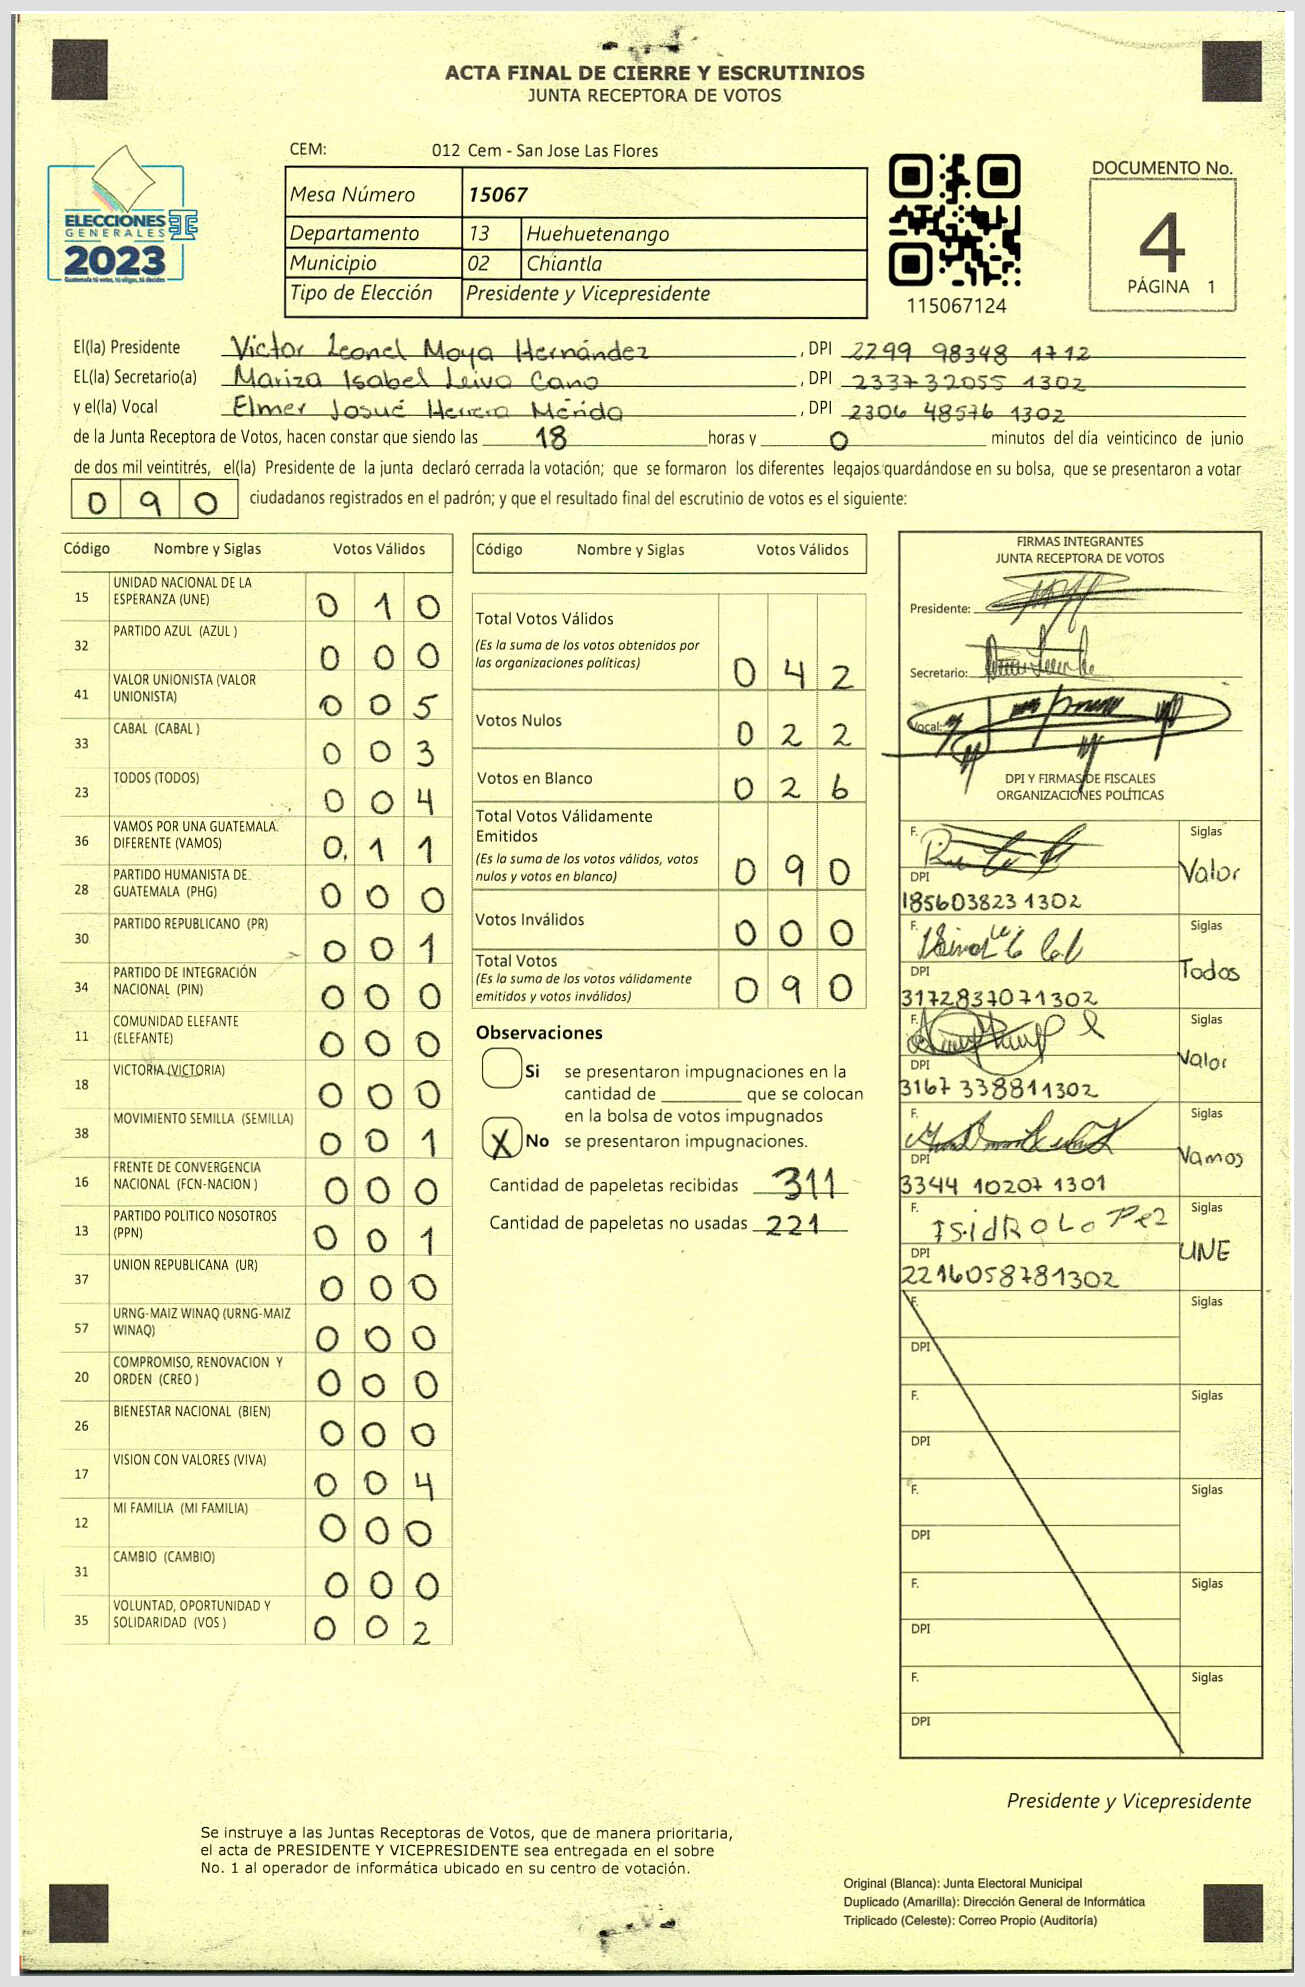 ACTA FINAL DE CIERRE Y ESCRUTINIOS
JUNTA RECEPTORA DE VOTOS
CEM: 012 Cem - San Jose Las Flores
ELECCIONES
GENERALES
2023
Guatemala tú votas, tú eliges, tú decides
Mesa Número 15067
Departamento 13 Huehuetenango
Municipio 02 Chiantla
Tipo de Elección Presidente y Vicepresidente
115067124
DOCUMENTO No.
4
PÁGINA 1
El(la) Presidente Victor Leonel Moya Hernández , DPI 2299 98348 1712
EL(la) Secretario(a) Mariza Isabel Leiva Cano , DPI 2337 32055 1302
y el(la) Vocal Elmer Josué Herrera Mérida , DPI 2306 48576 1302
de la Junta Receptora de Votos, hacen constar que siendo las 18 horas y 0 minutos del día veinticinco de junio
de dos mil veintitrés, el(la) Presidente de la junta declaró cerrada la votación; que se formaron los diferentes legajos guardándose en su bolsa, que se presentaron a votar
090 ciudadanos registrados en el padrón; y que el resultado final del escrutinio de votos es el siguiente:
Código Nombre y Siglas Votos Válidos
15 UNIDAD NACIONAL DE LA ESPERANZA (UNE) 010
32 PARTIDO AZUL (AZUL ) 000
41 VALOR UNIONISTA (VALOR UNIONISTA) 005
33 CABAL (CABAL ) 003
23 TODOS (TODOS) 004
36 VAMOS POR UNA GUATEMALA DIFERENTE (VAMOS) 011
28 PARTIDO HUMANISTA DE GUATEMALA (PHG) 000
30 PARTIDO REPUBLICANO (PR) 001
34 PARTIDO DE INTEGRACIÓN NACIONAL (PIN) 000
11 COMUNIDAD ELEFANTE (ELEFANTE) 000
18 VICTORIA (VICTORIA) 000
38 MOVIMIENTO SEMILLA (SEMILLA) 001
16 FRENTE DE CONVERGENCIA NACIONAL (FCN-NACION ) 000
13 PARTIDO POLITICO NOSOTROS (PPN) 001
37 UNION REPUBLICANA (UR) 000
57 URNG-MAIZ WINAQ (URNG-MAIZ WINAQ) 000
20 COMPROMISO, RENOVACION Y ORDEN (CREO ) 000
26 BIENESTAR NACIONAL (BIEN) 000
17 VISION CON VALORES (VIVA) 004
12 MI FAMILIA (MI FAMILIA) 000
31 CAMBIO (CAMBIO) 000
35 VOLUNTAD, OPORTUNIDAD Y SOLIDARIDAD (VOS ) 002
Código Nombre y Siglas Votos Válidos
Total Votos Válidos
(Es la suma de los votos obtenidos por
las organizaciones políticas) 042
Votos Nulos 022
Votos en Blanco 026
Total Votos Válidamente
Emitidos
(Es la suma de los votos válidos, votos
nulos y votos en blanco) 090
Votos Inválidos 000
Total Votos
(Es la suma de los votos válidamente
emitidos y votos inválidos) 090
Observaciones
Si se presentaron impugnaciones en la
cantidad de ________ que se colocan
en la bolsa de votos impugnados
X No se presentaron impugnaciones.
Cantidad de papeletas recibidas 311
Cantidad de papeletas no usadas 221
FIRMAS INTEGRANTES
JUNTA RECEPTORA DE VOTOS
Presidente:
Secretario:
Vocal:
DPI Y FIRMAS DE FISCALES
ORGANIZACIONES POLÍTICAS
F. Siglas
Valor
DPI
185603823 1302
F. Siglas
Todos
DPI
3172837071302
F. Siglas
Valor
DPI
3167 338811302
F. Siglas
Vamos
DPI
3344 10207 1301
F. ISidRO LoPez Siglas
UNE
DPI
2216058781302
F. Siglas
DPI
F. Siglas
DPI
F. Siglas
DPI
F. Siglas
DPI
F. Siglas
DPI
Presidente y Vicepresidente
Se instruye a las Juntas Receptoras de Votos, que de manera prioritaria,
el acta de PRESIDENTE Y VICEPRESIDENTE sea entregada en el sobre
No. 1 al operador de informática ubicado en su centro de votación.
Original (Blanca): Junta Electoral Municipal
Duplicado (Amarilla): Dirección General de Informática
Triplicado (Celeste): Correo Propio (Auditoría)